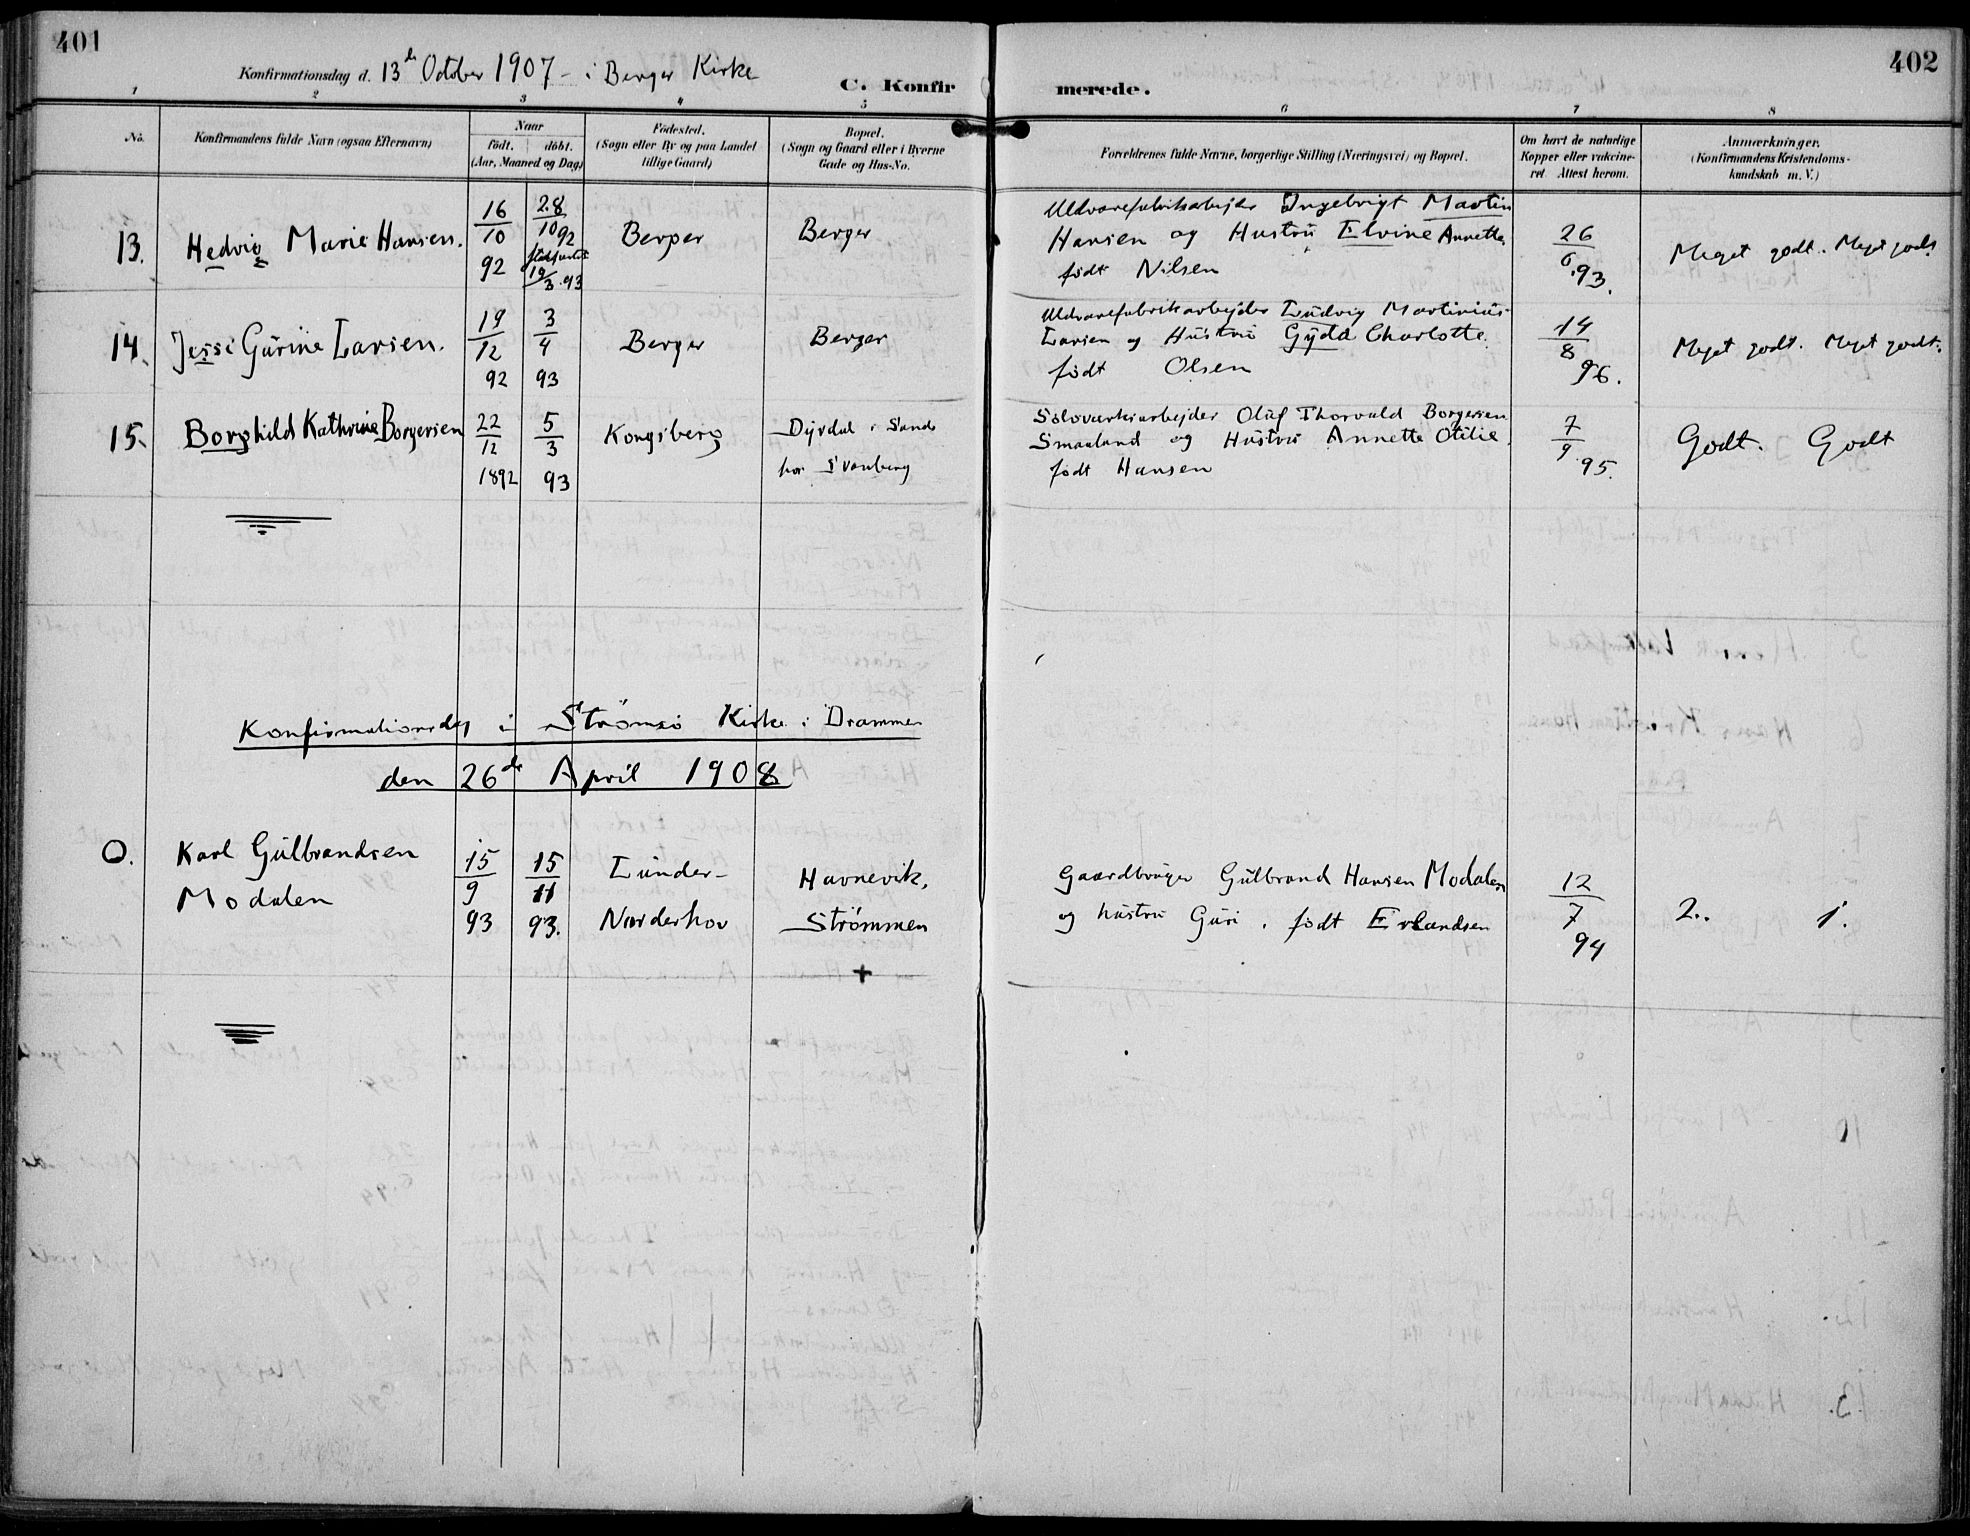 401
402
Konfirmationsdag d. 13de October 1907 - i Berger Kirke
C. Konfirmerede.
1 2 3 4 5 6 7 8
No.
Konfirmandens fulde Navn (ogsaa Efternavn)
Naar
födt. döbt.
(Aar, Maaned og Dag)
Födested.
(Sogn eller By og paa Landet
tillige Gaard)
Bopæl.
(Sogn og Gaard eller i Byerne
Gade og Hus-No.
Forældrenes fulde Navne, borgerlige Stilling (Næringsvei) og Bopæl.
Om havt de naturlige
Kopper eller vakcine-
ret. Attest herom.
Anmærkninger.
(Konfirmandens Kristendoms-
kundskab m. V.)
13. Hedvig Marie Hansen.
16/10 92
28/10 92
19/3 93
Berger
Berger
Uldvarefabrikarbejder Ingebrigt Martin
Hansen og Hustru Elvine Annette,
født Nilsen
26/6 93.
Meget godt. Meget godt.
14. Jessi Gurine Larsen.
19/12 92
3/4 93
Berger
Berger
Uldvarefabrikarbejder Ludvig Martinius
Larsen og Hustru Gyda Charlotte
født Olsen
14/8 96.
Meget godt. Meget godt.
15. Borghild Kathrine Borgersen
22/12 1892
5/3 93
Kongsberg
Dyrdal i Sande
hos Svanberg
Sølvværksarbejder Oluf Thorvald Borgersen
Smaaland og Hustru Annette Otilie
født Hansen
7/9 95.
Godt. Godt
Konfirmationsdag i Strømsø Kirke i Drammen
den 26de April 1908
O. Karl Gulbrandsen
Modalen
15/9 93
15/11 93.
Lunder-
Norderhov
Havnevik,
Strømmen
+
Gaardbruger Gulbrand Hansen Modalen
og hustru Guri, født Erlandsen
12/7 94
2.. 1.